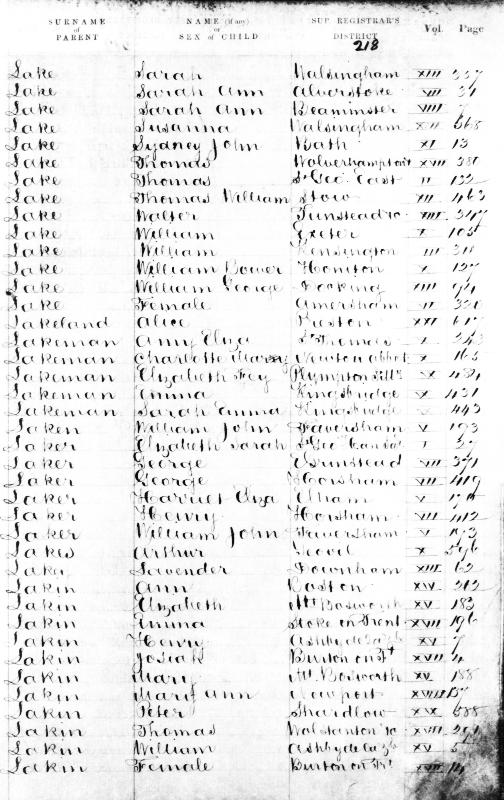 SURNAME OF PARENT NAME (if any) or SEX of CHILD SUP. REGISTRAR'S DISTRICT Vol. Page
218
Lake Sarah Walsingham XIII 337
Lake Sarah Ann Alverstoke VII 31
Lake Sarah Ann Beaminster VIII 7
Lake Susanna Walsingham 368
Lake Sydney John Bath XI 13
Lake Thomas Wolverhampton XVII 381
Lake Thomas St Geo. East II 132
Lake Thomas William Stow XII 463
Lake Walter Tunstead XIII
Lake William Exeter X 105
Lake William Kensington III
Lake William Bower Honiton X 137
Lake William George Docking XIII
Lake Female Amersham
Lakeland Alice Preston XXI
Lakeman Amy Eliza St Thomas X 343
Lakeman Charlotte Newton abbot X 165
Lakeman Elizabeth Fey Plympton X 484
Lakeman Emma Kingsbridge X 431
Lakeman Sarah Emma X 443
Laken William John Faversham V 193
Laker Elizabeth Sarah St Geo.
Laker George E Grinstead VII 371
Laker George Horsham VII 419
Laker Harriet Eliza Elham V
Laker Henry Horsham VII 412
Laker William John Faversham V 193
Lakes Arthur Yeovil X
Lavender Downham XIII 63
Lakin Ann Boston XIV 313
Lakin Elizabeth Mt Bosworth XV 183
Lakin Emma Stoke on Trent XVII 196
Lakin Henry Ashby de la Zh XV 7
Lakin Josiah Burton on Tt XVII 4
Lakin Mary Mt Bosworth XV 188
Lakin Mary Ann Newport XVIII 137
Lakin Peter Shardlow XIX 588
Lakin Thomas Wolstanton XVII
Lakin William Ashby de la Zh XV 5
Lakin Female Burton on Trt XVII 14